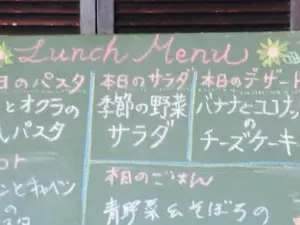 Lunch Menu
日のパスタ
とオクラの
パスタ
本日のサラダ
季節の野菜
サラダ
本日のデザート
バナナとココナッツ
の
チーズケーキ
ンとキャベツ
の
本日のごはん
青野菜&そぼろの